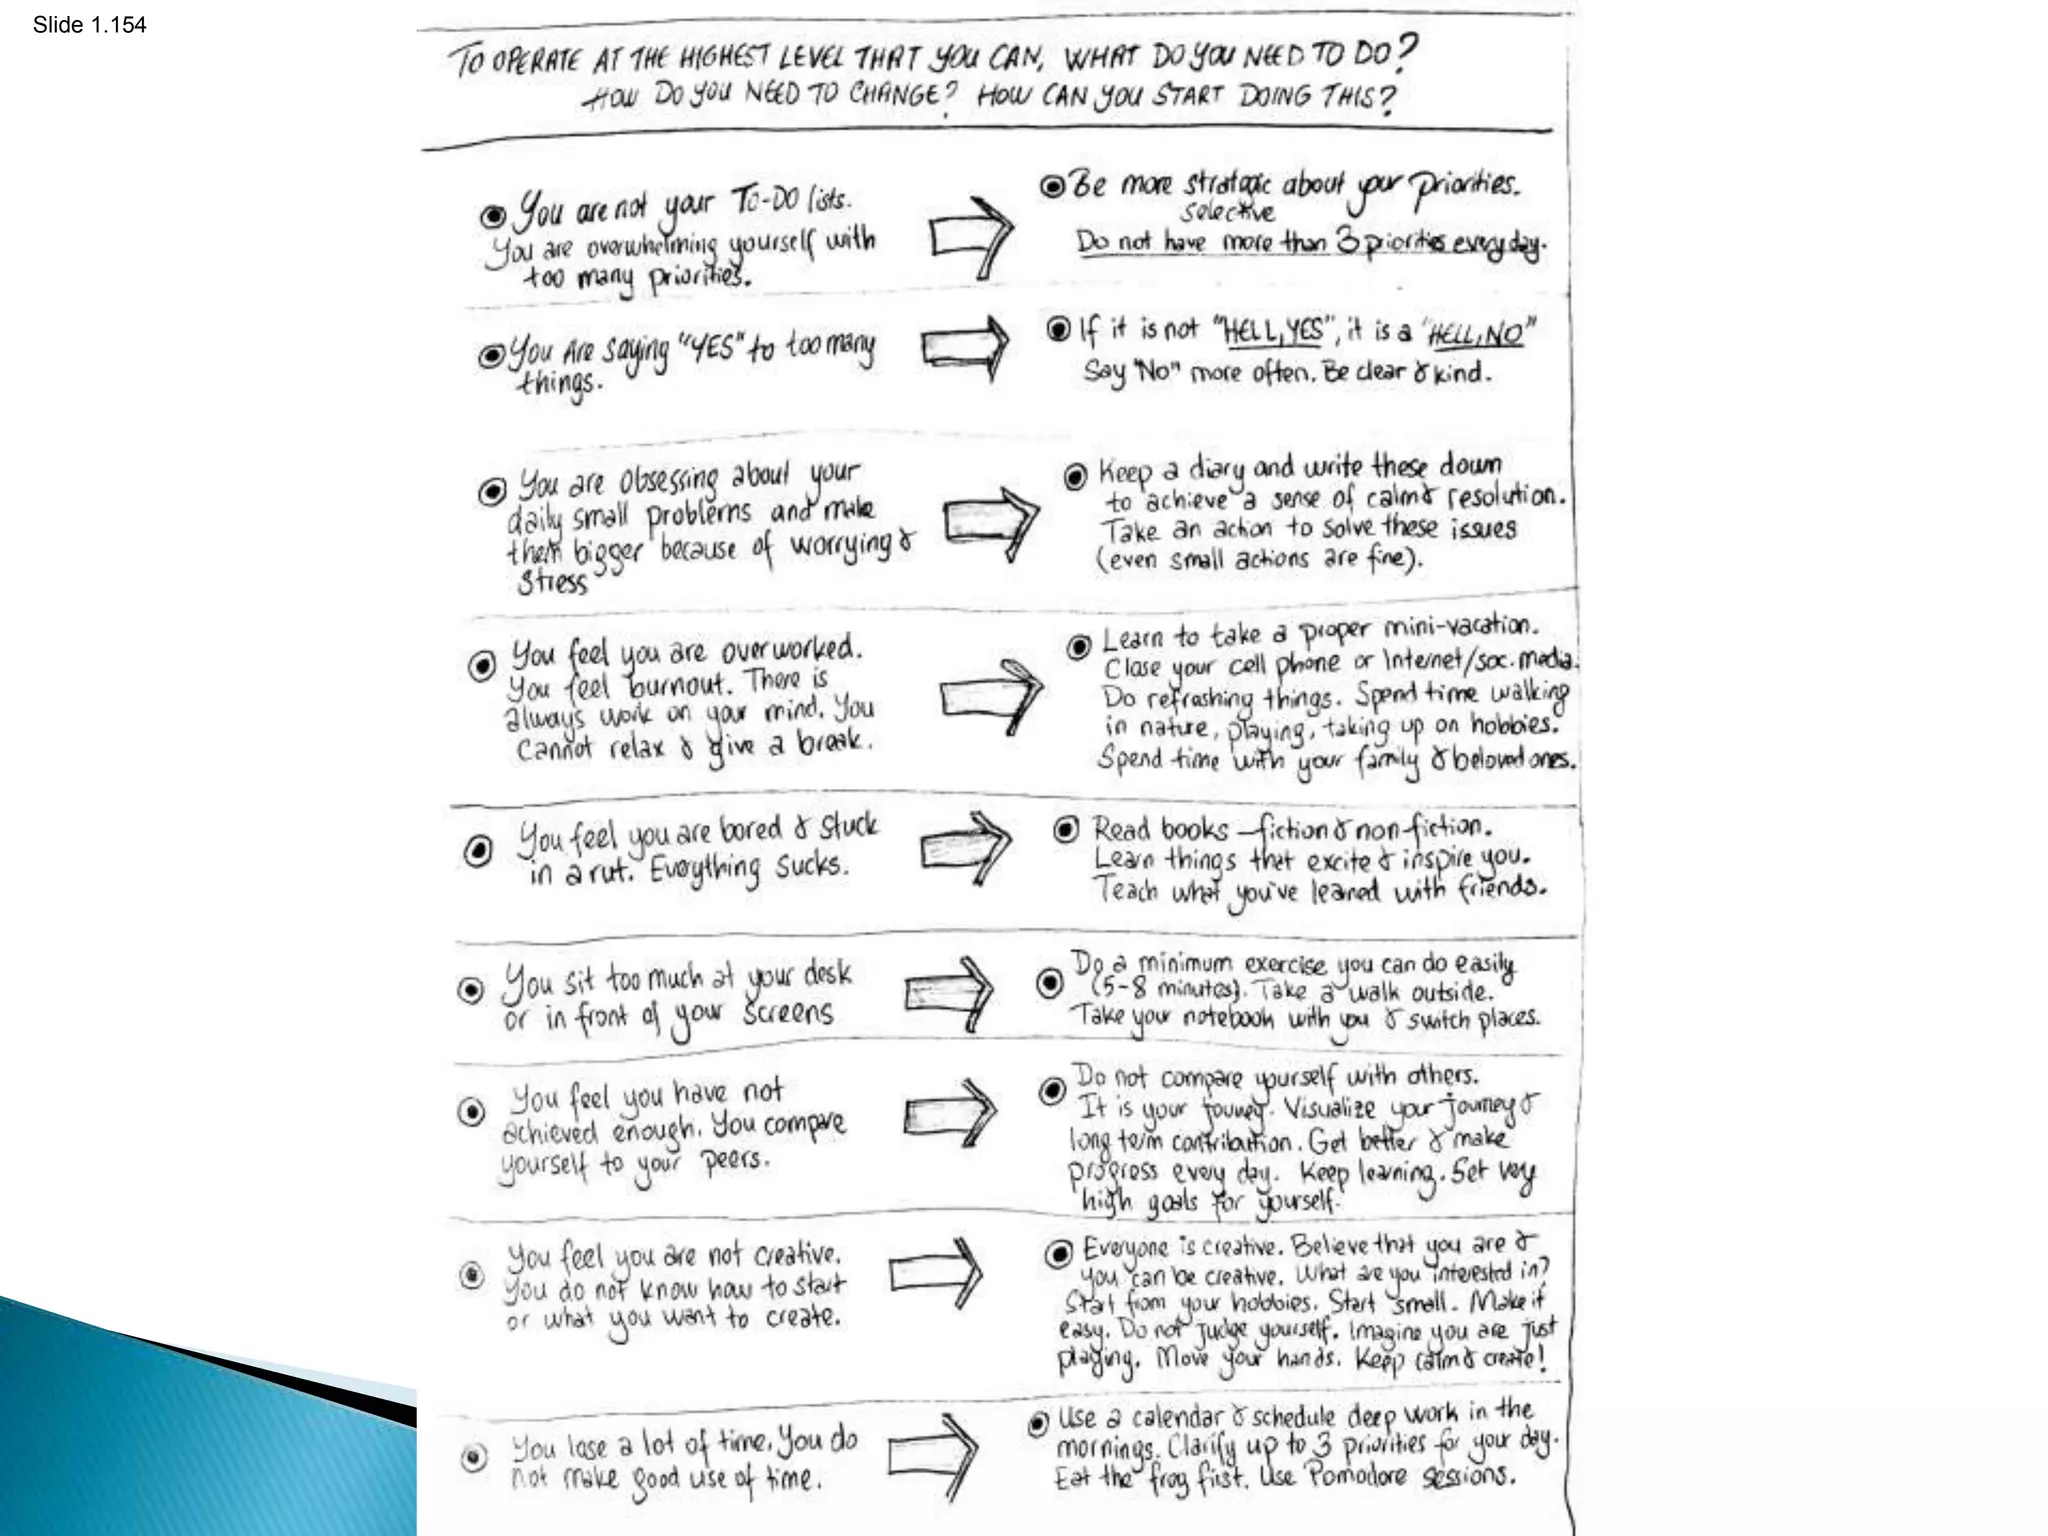 Slide 1.154
TO OPERATE AT THE HIGHEST LEVEL THAT YOU CAN, WHAT DO YOU NEED TO DO?
HOW DO YOU NEED TO CHANGE? HOW CAN YOU START DOING THIS?
You are not your TO-DO lists.
You are overwhelming yourself with
too many priorities.
Be more strategic about your priorities.
selective
Do not have more than 3 priorities every day.
You Are saying "YES" to too many
things.
If it is not "HELL, YES", it is a "HELL, NO"
Say "No" more often. Be clear & kind.
You are obsessing about your
daily small problems and make
them bigger because of worrying &
stress
Keep a diary and write these down
to achieve a sense of calm & resolution.
Take an action to solve these issues
(even small actions are fine).
You feel you are overworked.
You feel burnout. There is
always work on your mind. You
cannot relax & give a break.
Learn to take a proper mini-vacation.
Close your cell phone or Internet/soc. media.
Do refreshing things. Spend time walking
in nature, playing, taking up on hobbies.
Spend time with your family & beloved ones.
You feel you are bored & stuck
in a rut. Everything sucks.
Read books – fiction & non-fiction.
Learn things that excite & inspire you.
Teach what you've learned with friends.
You sit too much at your desk
or in front of your screens
Do a minimum exercise you can do easily
(5-8 minutes). Take a walk outside.
Take your notebook with you & switch places.
You feel you have not
achieved enough. You compare
yourself to your peers.
Do not compare yourself with others.
It is your journey. Visualize your journey &
long term contribution. Get better & make
progress every day. Keep learning. Set very
high goals for yourself.
You feel you are not creative.
You do not know how to start
or what you want to create.
Everyone is creative. Believe that you are &
you can be creative. What are you interested in?
Start from your hobbies. Start small. Make it
easy. Do not judge yourself. Imagine you are just
playing. Move your hands. Keep calm & create!
You lose a lot of time. You do
not make good use of time.
Use a calendar & schedule deep work in the
mornings. Clarify up to 3 priorities for your day.
Eat the frog first. Use Pomodore sessions.